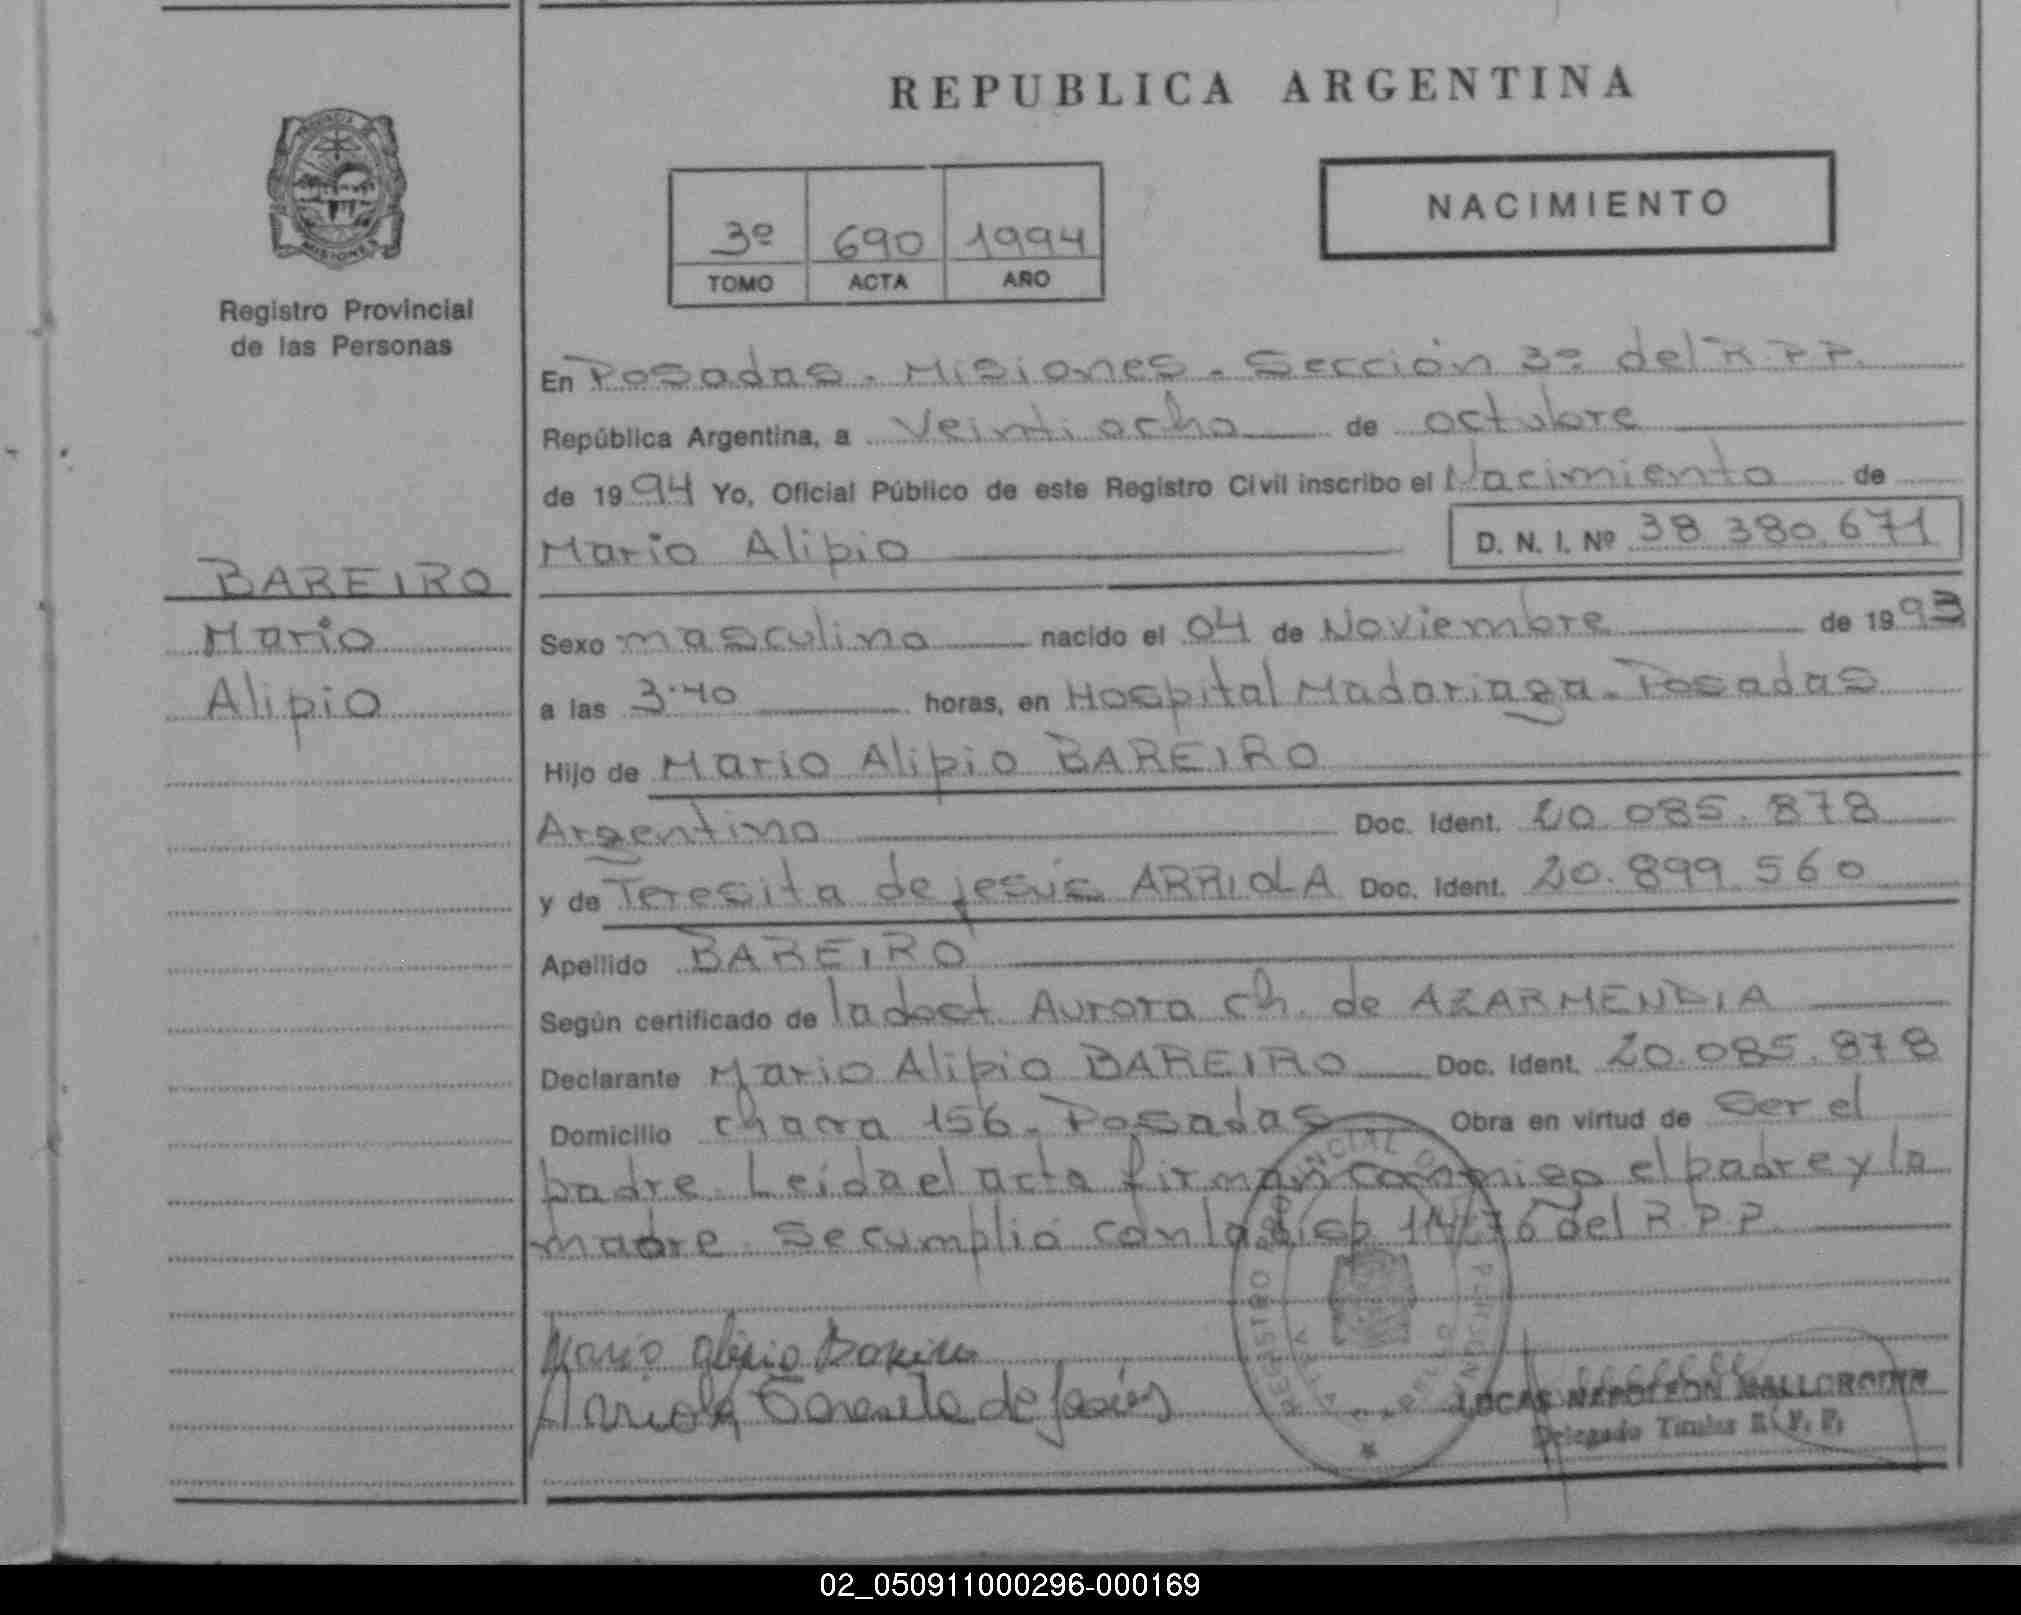 REPUBLICA ARGENTINA
PROVINCIA DE
MISIONES
Registro Provincial
de las Personas
3º 690 1994
TOMO ACTA AÑO
NACIMIENTO
En Posadas. Misiones. Sección 3º del R.P.P.
República Argentina, a Veintiocho de octubre
de 1994 Yo, Oficial Público de este Registro Civil inscribo el Nacimiento de
Mario Alipio D. N. I. Nº 38.380.671
BAREIRO
Mario
Alipio
Sexo masculino nacido el 04 de Noviembre de 1993
a las 3:40 horas, en Hospital Madariaga. Posadas
Hijo de Mario Alipio BAREIRO
Argentino Doc. Ident. 20.085.878
y de Teresita de jesús ARRIOLA Doc. Ident. 20.899.560
Apellido BAREIRO
Según certificado de la doct. Aurora Ch. de AZARMENDIA
Declarante Mario Alipio BAREIRO Doc. Ident. 20.085.878
Domicilio chacra 156. Posadas Obra en virtud de Ser el
padre. Leída el acta firman conmigo el padre y la
madre. Se cumplió con la Disp. 14/76 del R.P.P.
Mario Alipio Bareiro
Arriola Teresita de Jesús
LUCAS NAPOLEON
Delegado Titular R. P. P.
REGISTRO PROVINCIAL DE
02_050911000296-000169